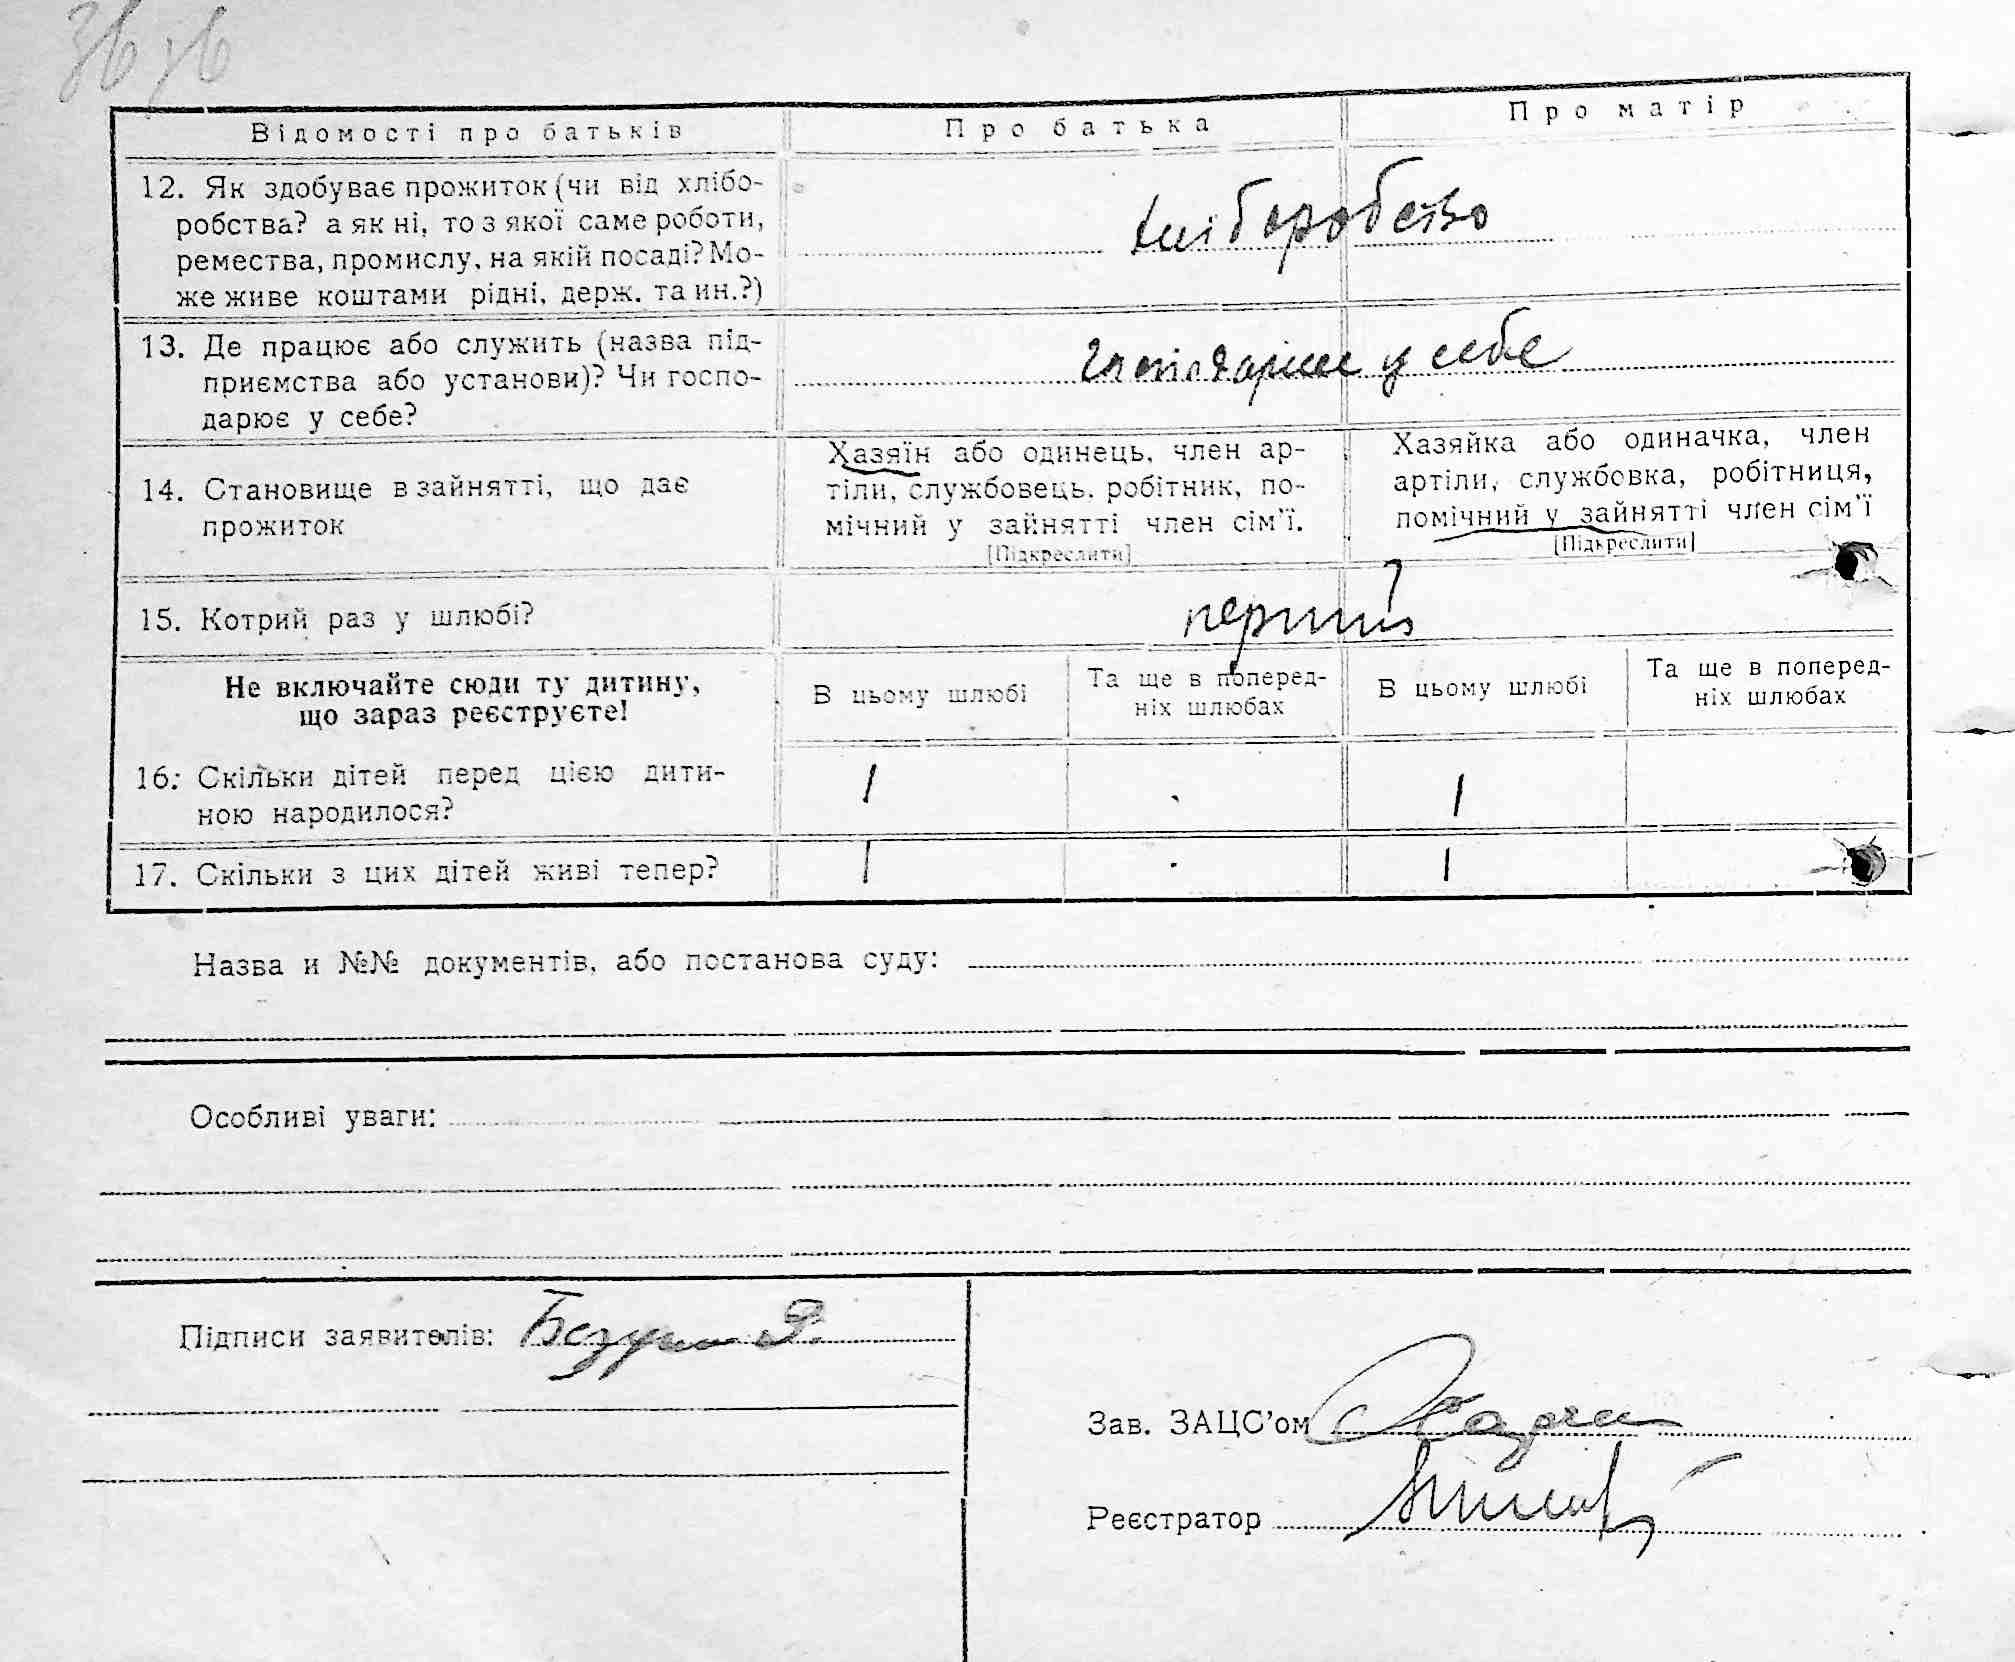 Відомості про батьків
Про батька
Про матір
12. Як здобуває прожиток (чи від хлібо-
робства? а як ні, то з якої саме роботи,
ремества, промислу, на якій посаді? Мо-
же живе коштами рідні, держ. та ин.?)
хліборобство
13. Де працює або служить (назва під-
приємства або установи)? Чи госпо-
дарює у себе?
господарює у себе
14. Становище в зайнятті, що дає
прожиток
Хазяїн або одинець, член ар-
тіли, службовець, робітник, по-
мічний у зайнятті член сім'ї.
[Підкреслити]
Хазяйка або одиначка, член
артіли, службовка, робітниця,
помічний у зайнятті член сім'ї
[Підкреслити]
15. Котрий раз у шлюбі?
перший
Не включайте сюди ту дитину,
що зараз реєструєте!
В цьому шлюбі
Та ще в поперед-
ніх шлюбах
В цьому шлюбі
Та ще в поперед-
ніх шлюбах
16. Скільки дітей перед цією дити-
ною народилося?
1
1
17. Скільки з цих дітей живі тепер?
1
1
Назва и №№ документів, або постанова суду:
Особливі уваги:
Підписи заявителів:
Зав. ЗАЦС'ом
Реєстратор